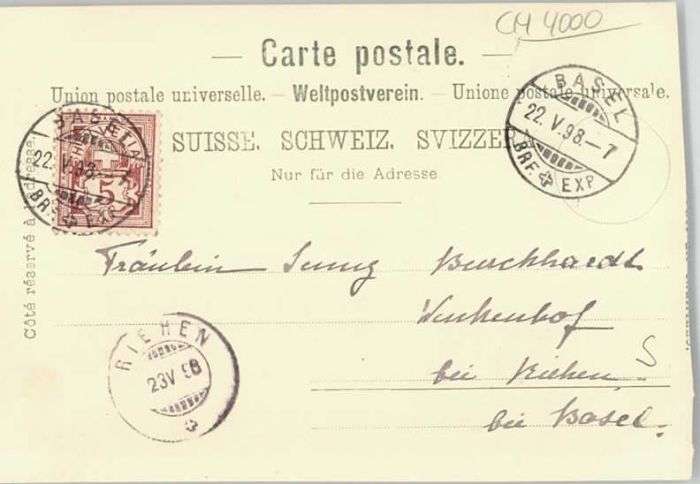 CH 4000
Carte postale.
Union postale universelle. — Weltpostverein. — Unione postale universale.
SUISSE. SCHWEIZ. SVIZZERA
Nur für die Adresse
Côté réservé à l'adresse.
BASEL
22. V. 98. – 7
BRF. EXP
BASEL
22. V. 98. – 7
BRF. EXP
5
Fräulein Burckhardt
Wenkenhof
bei Riehen
bei Basel.
RIEHEN
23 V 98
S